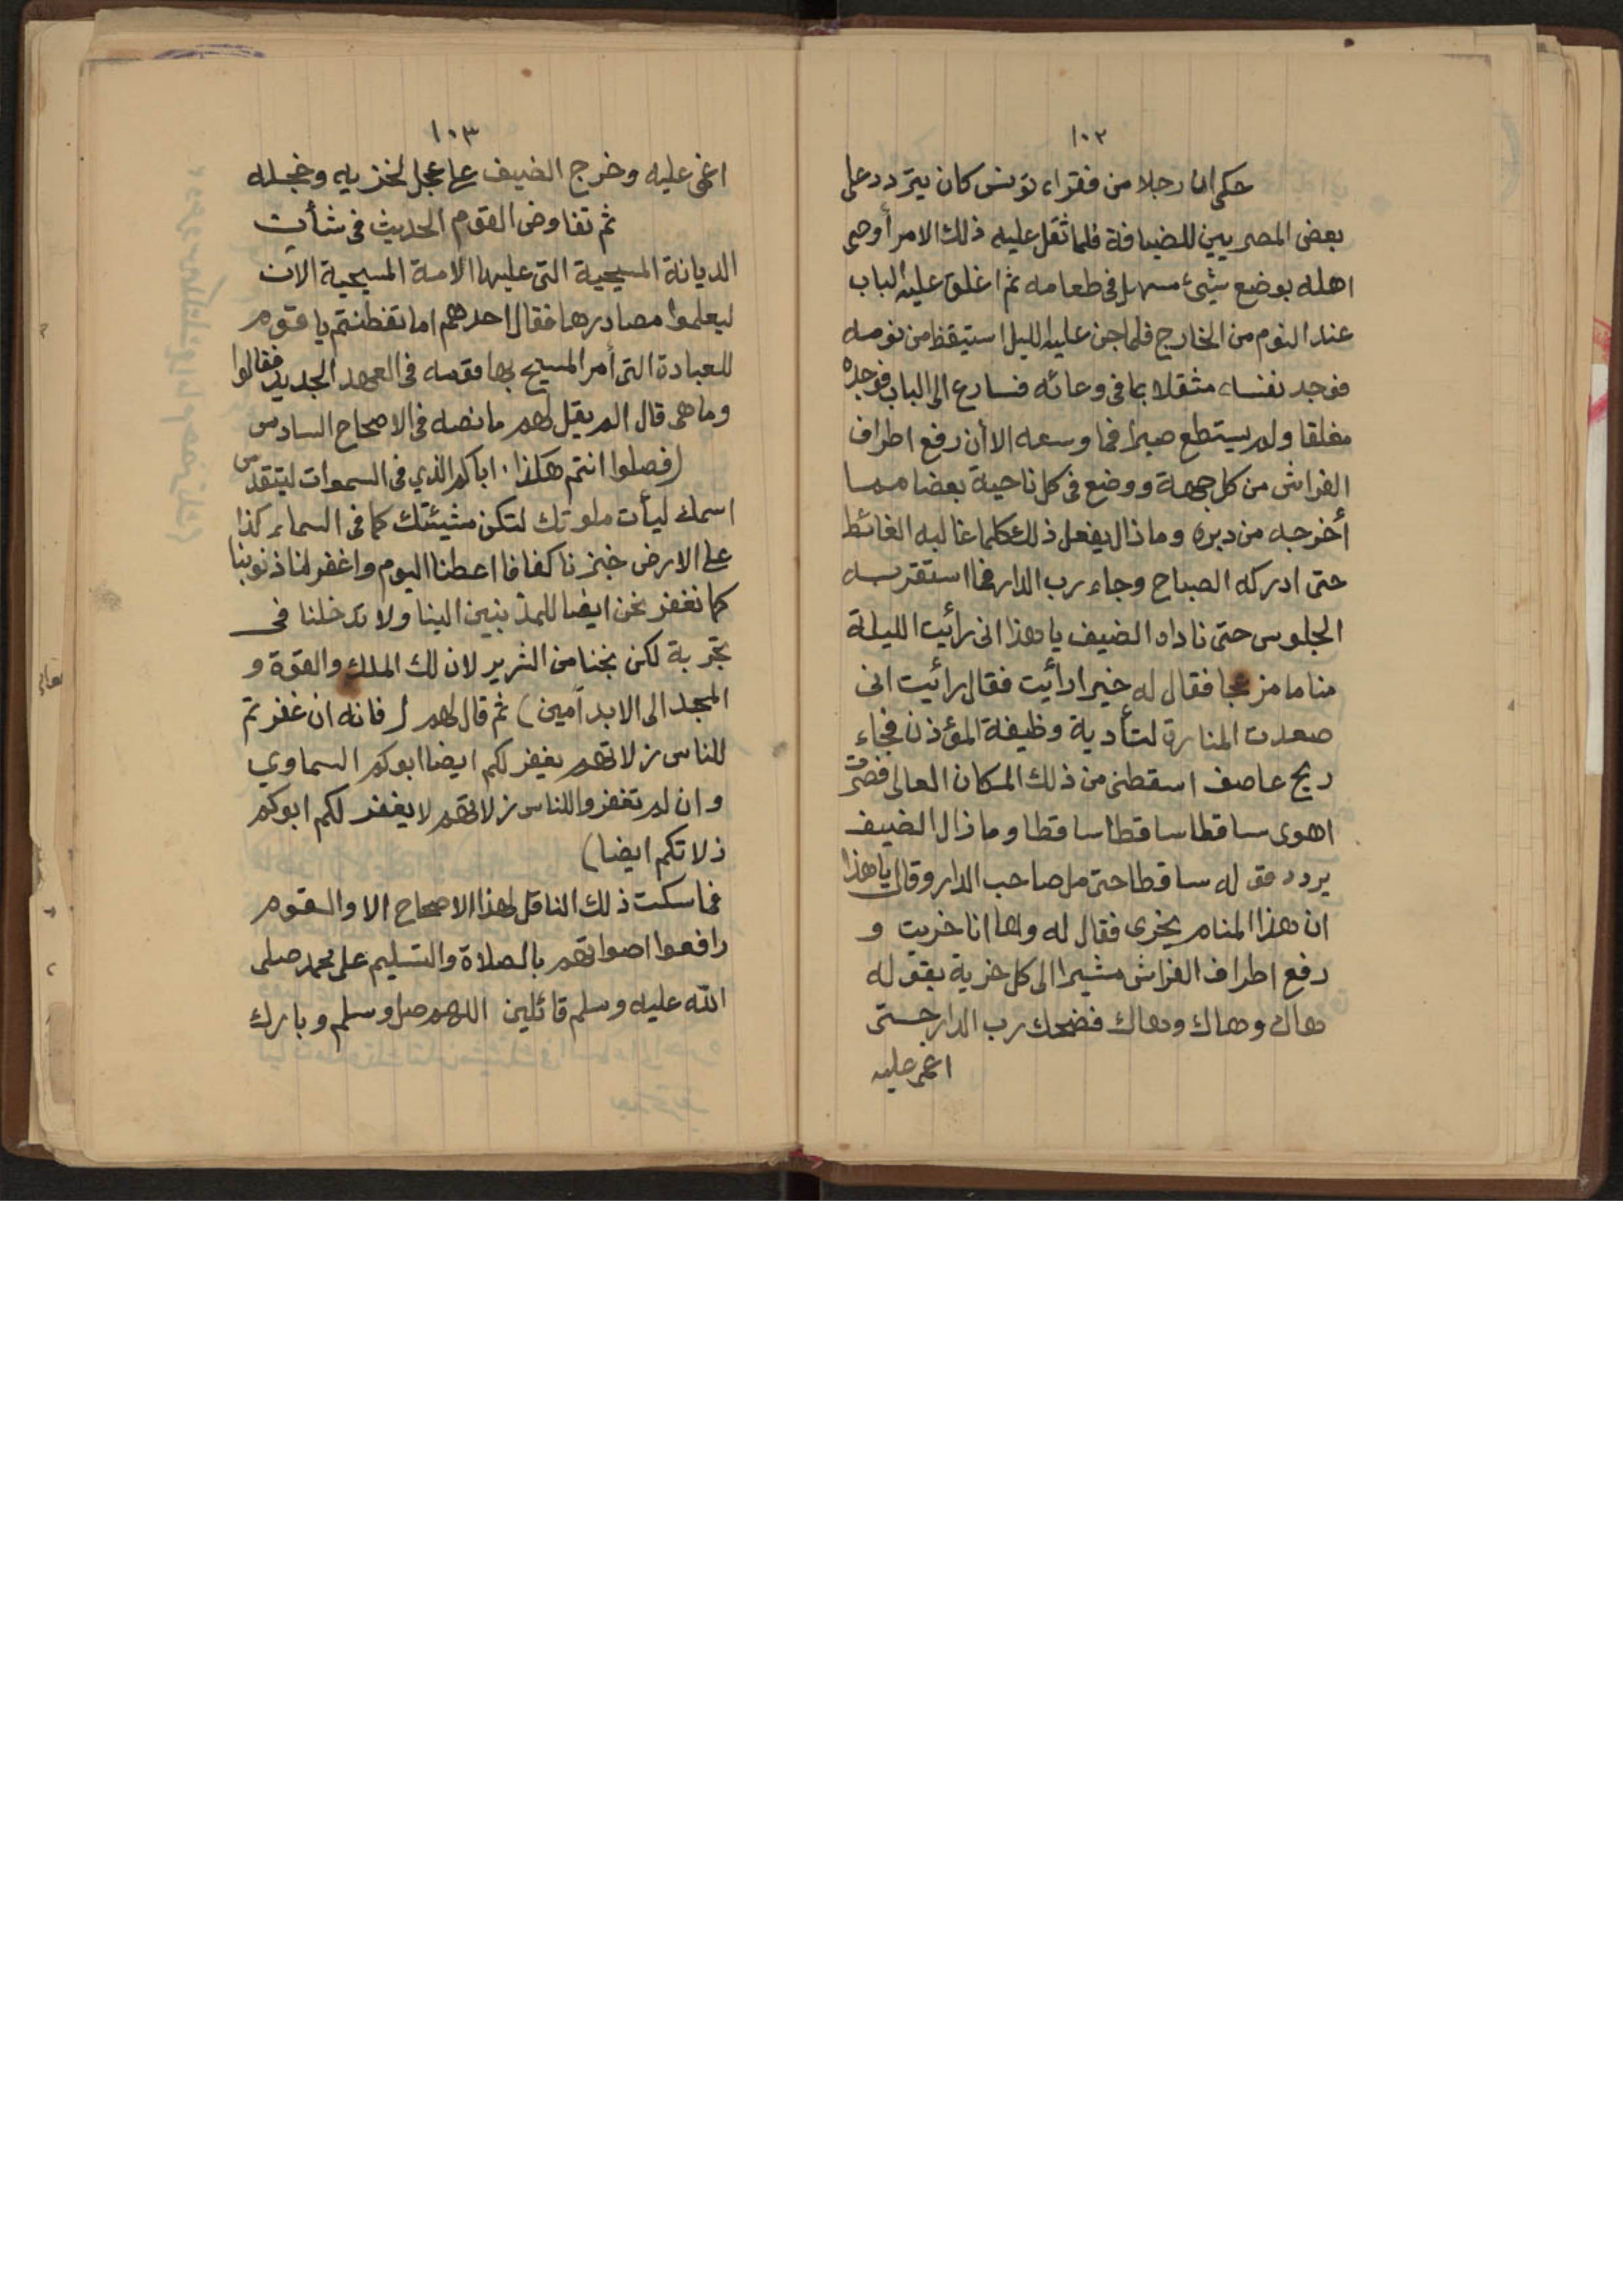 ١٠٢
حكى ان رجلا من فقراء تونس كان يتردد على
بعض المصريين للضيافة فلما ثقل عليه ذلك الامر أوصى
اهله بوضع شيئ مسهل فى طعامه ثم اغلق عليه الباب
عند النوم من الخارج فلما جن عليه الليل استيقظ من نومه
فوجد نفسه مثقلا بما فى وعائه فسارع الى الباب فوجده
مغلقا ولم يستطع صبرا فما وسعه الا أن رفع اطراف
الفراش من كل جهة ووضع فى كل ناحية بعضا مما
أخرجه من دبره وما زال يفعل ذلك كلما غالبه الغائط
حتى ادركه الصباح وجاء رب الدار فما استقر به
الجلوس حتى ناداه الضيف يا هذا انى رأيت الليلة
مناما مزعجا فقال له خيرا رأيت فقال رائيت انى
صعدت المنارة لتأدية وظيفة المؤذن فجاء
ريح عاصف اسقطنى من ذلك المكان العالى فصرت
اهوى ساقطا ساقطا ساقطا وما زال الضيف
يردد قوله ساقطا حتى مل صاحب الدار وقال يا هذا
ان هذا المنام يخرى فقال له وها انا خريت و
رفع اطراف الفراش مشيرا الى كل خرية بقوله
هاك وهاك وهاك فضحك رب الدار حتى
اغمى عليه
١٠٣
اغمى عليه وخرج الضيف على عجل لخزيه وخجله
ثم تفاوض القوم الحديث فى شأن
الديانة المسيحية التى عليها الامة المسيحية الآن
ليعلموا مصادرها فقال احدهم اما تفطنتم يا قوم
للعبادة التى أمر المسيح بها قومه فى العهد الجديد فقالوا
وما هى قال الم يقل لهم ما نصه فى الاصحاح السادس
(فصلوا انتم هكذا، اباكم الذي فى السموات ليتقدس
اسمك ليأت ملوتك لتكن مشيئتك كما فى السماء كذا
على الارض خبزنا كفافا اعطنا اليوم واغفر لنا ذنوبنا
كما نغفر نحن ايضا للمذنبين الينا ولا تدخلنا فى
تجربة لكن نجنا من الشرير لان لك الملك والقوة و
المجد الى الابد آمين) ثم قال لهم (فانه ان غفرتم
للناس زلاتهم يغفر لكم ايضا ابوكم السماوي
وان لم تغفروا للناس زلاتهم لا يغفر لكم ابوكم
زلاتكم ايضا)
فما سكت ذلك الناقل لهذا الاصحاح الا والقوم
رافعوا اصواتهم بالصلاة والتسليم على محمد صلى
الله عليه وسلم قائلين اللهم صل وسلم وبارك